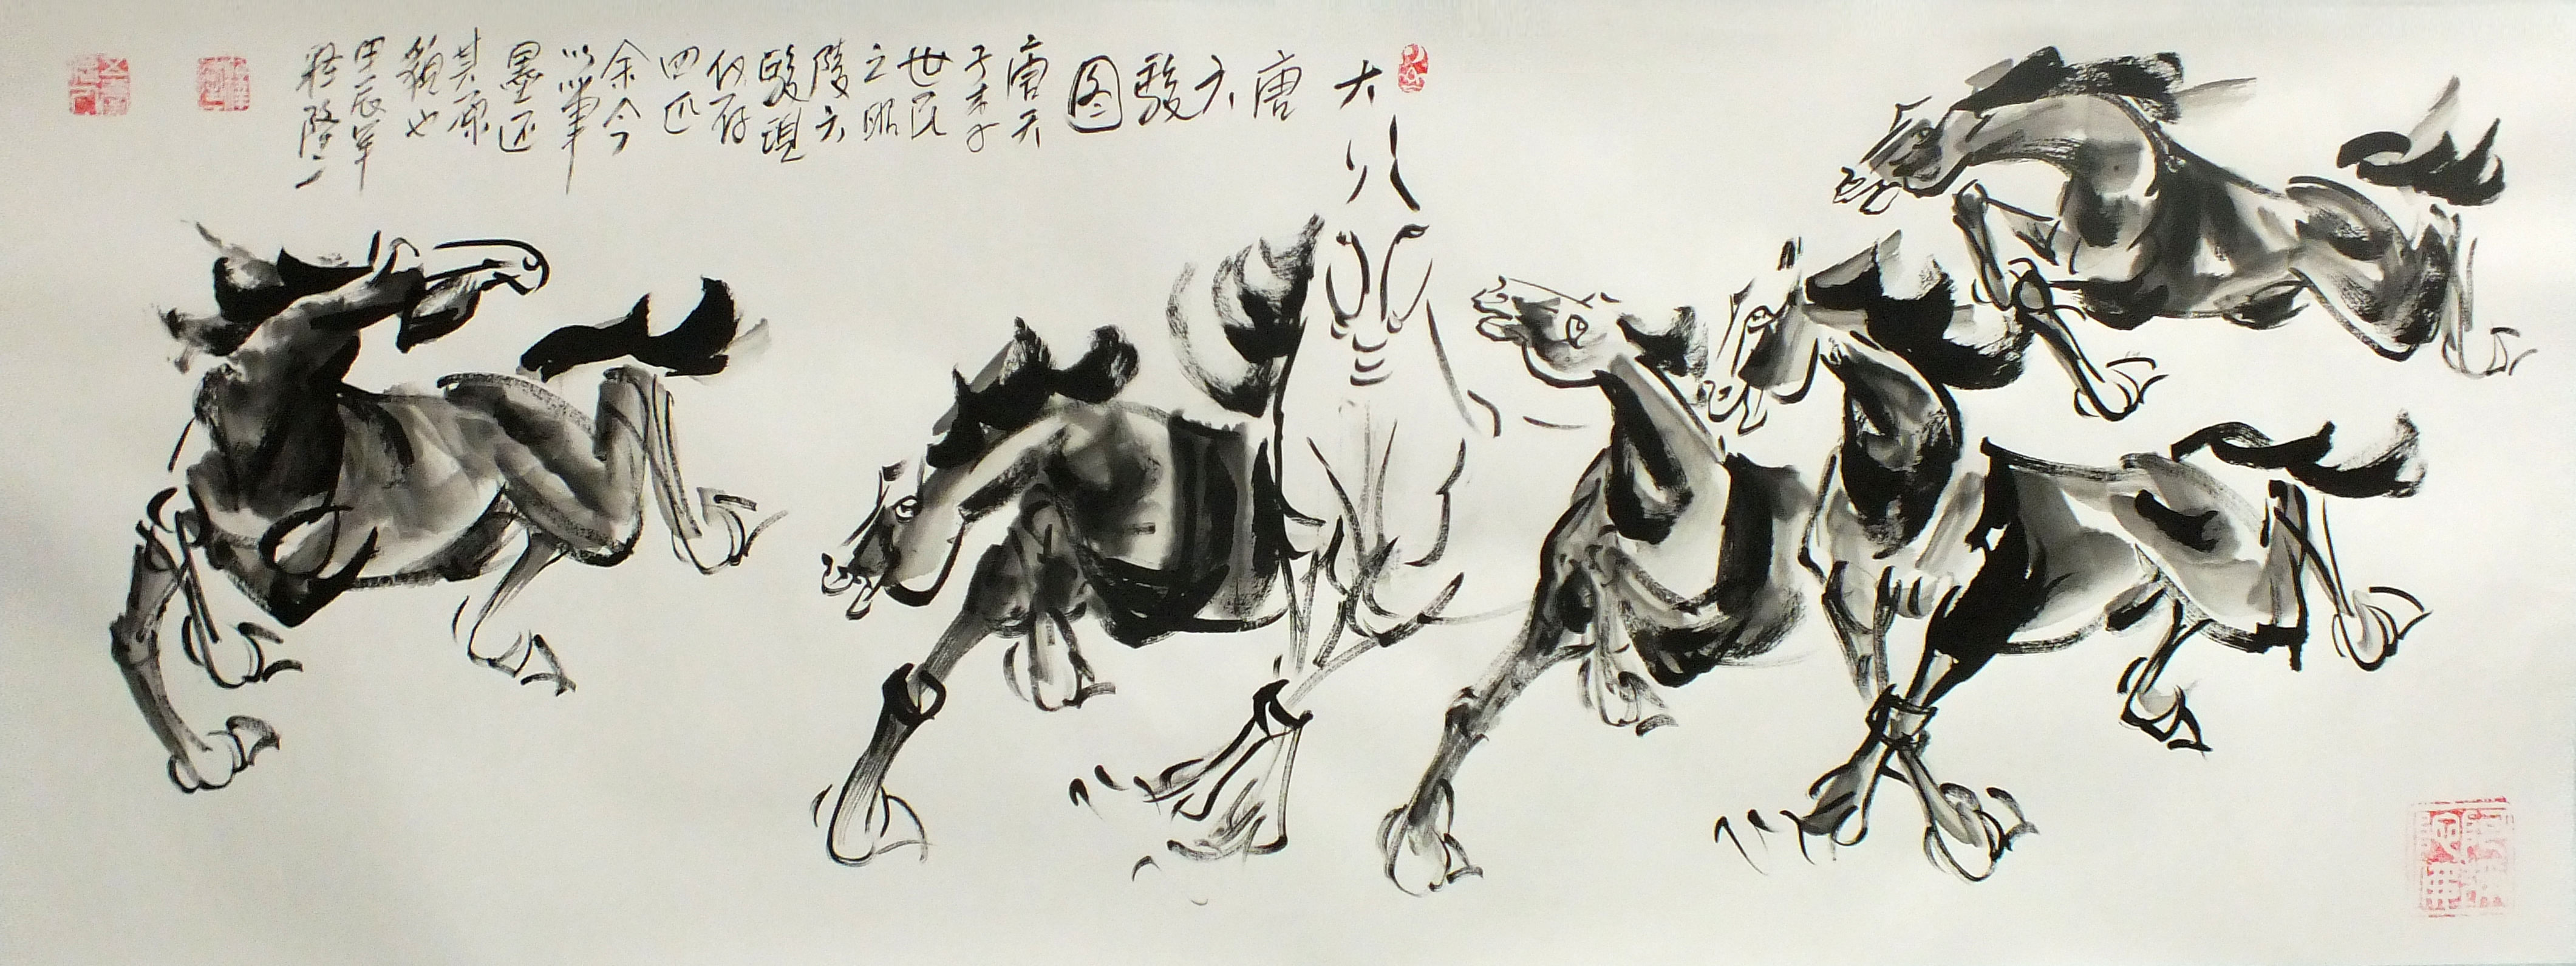 大唐六骏图
唐天
子李
世民
之昭
陵六
骏现
仅存
四匹
余今
以笔
墨还
其原
貌也
甲辰年